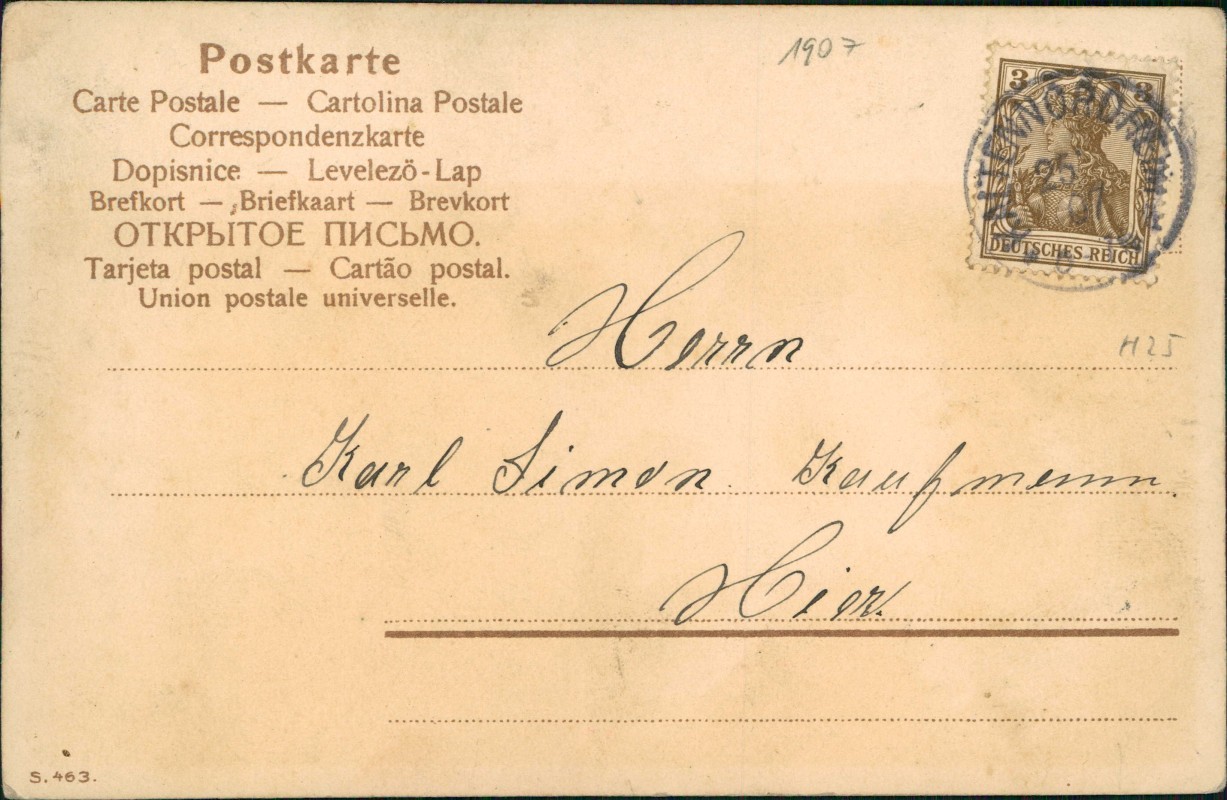 Postkarte
Carte Postale — Cartolina Postale
Correspondenzkarte
Dopisnice — Levelezö-Lap
Brefkort — Briefkaart — Brevkort
ОТКРЫТОЕ ПИСЬМО.
Tarjeta postal — Cartão postal.
Union postale universelle.
1907
3 3
DEUTSCHES REICH
25
07
Herrn
H25
Karl Simon Kaufmann.
Hier.
S. 463.